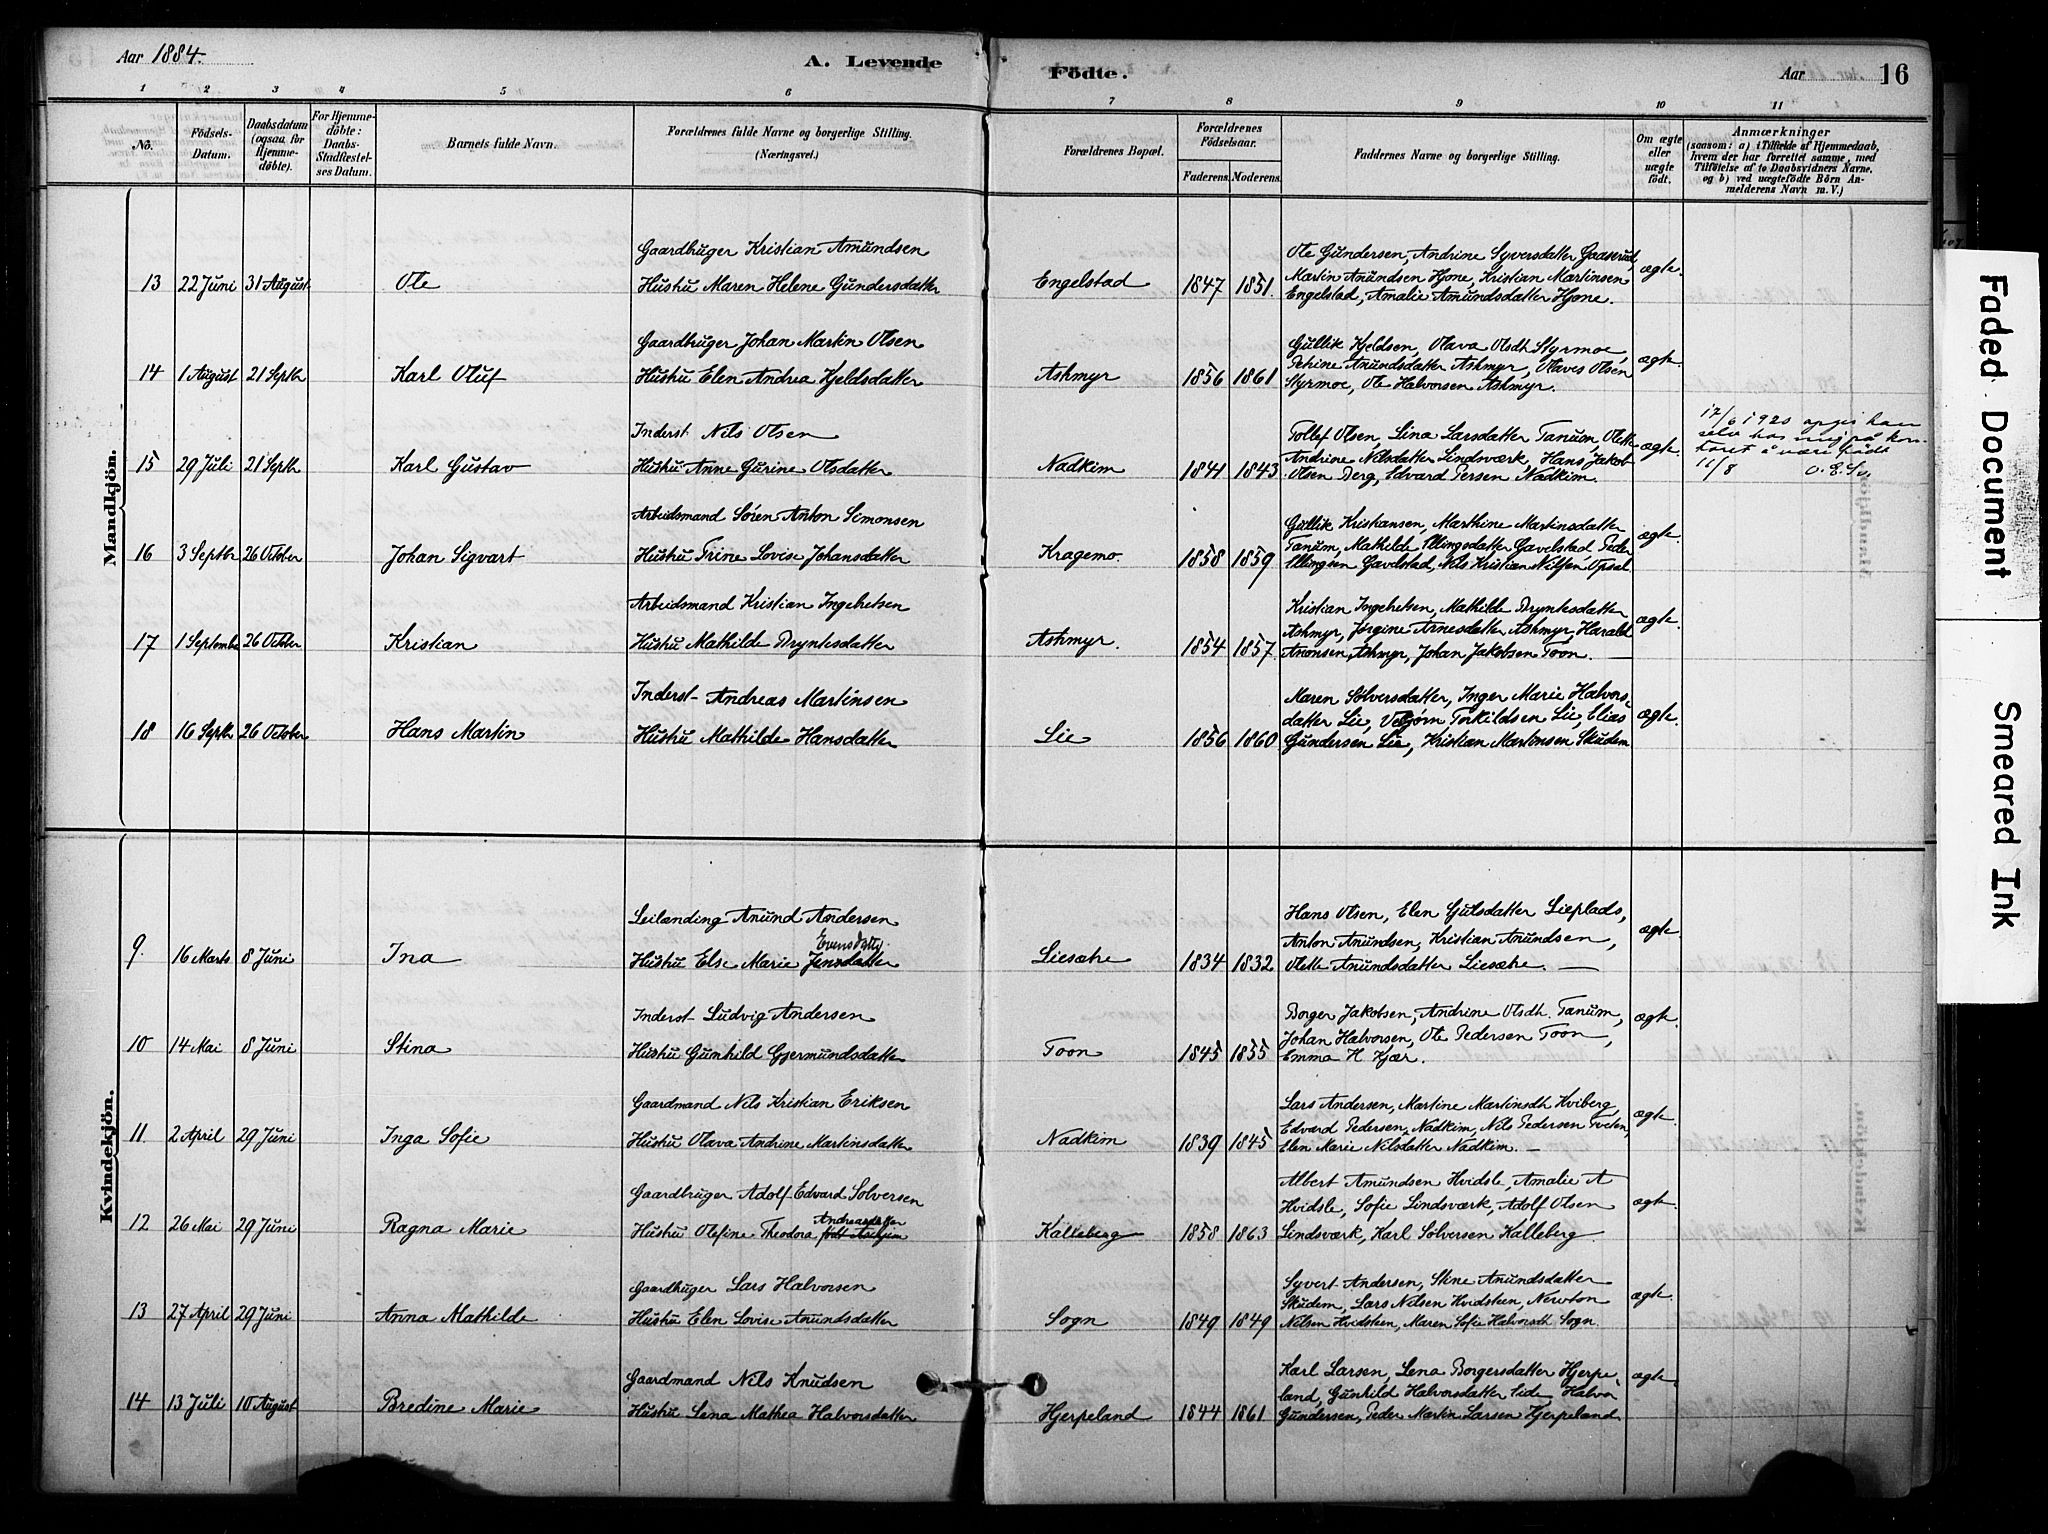 Aar 1884.
A. Levende Födte.
Aar
16
1 2 3 4 5 6 7 8 9 10 11
No.
Födsels-Datum.
Daabsdatum (ogsaa for Hjemme-döbte).
For Hjemme-döbte: Daabs-Stadfæstel-ses Datum.
Barnets fulde Navn.
Forældrenes fulde Navne og borgerlige Stilling. (Næringsvei.)
Forældrenes Bopæl.
Forældrenes Födselsaar.
Faderens. Moderens.
Faddernes Navne og borgerlige Stilling.
Om ægte eller uægte födt.
Anmærkninger
(saasom: a) i Tilfælde af Hjemmedaab,
hvem der har forrettet samme, med
Tilföielse af to Daabsvidners Navne,
og b) ved uægtefödte Börn An-
melderens Navn m. V.)
Mandkjön.
Gaardbruger Kristian Amundsen
13 22 Juni 31 August Ole Hustru Maren Helene Gundersdatter Engelstad 1847 1851.
Ole Gundersen, Andrine Syversdatter Gaaserud,
Martin Amundsen Hjone, Kristian Martinsen
Engelstad, Amalie Amundsdatter Hjone.
ægte.
Gaardbruger Johan Martin Olsen
14 1 August 21 Septbr Karl Oluf Hustru Elen Andrea Kjeldsdatter Askmyr 1856 1861
Gullik Kjeldsen, Olava Olsdt Styrmoe,
Petrine Anundsdatter Askmyr, Olaves Olsen
Styrmoe, Ole Halvorsen Askmyr.
ægte.
Inderst Nils Olsen
15 29 Juli 21 Septbr Karl Gustav Hustru Anne Gurine Olsdatter Nadkim 1841 1843
Tollef Olsen, Lina Larsdatter Tanum, Olette
Andrine Nilsdatter Lindsværk, Hans Jakob
Olsen Berg, Edvard Persen Nadkim.
ægte.
17/6 1920 opgis han
selv hos mig på kon-
toret å være født
11/8
Arbeidsmand Søren Anton Simonsen
16 3 Septbr 26 October Johan Sigvart Hustru Trine Lovise Johansdatter Kragemo. 1858 1859
Gullik Kristiansen, Marthine Martinsdatter
Tanum, Mathilde Ellingsdatter Gavelstad, Peder
Ellingsen Gavelstad, Nils Kristian Nilsen Opsal.
ægte.
Arbeidsmand Kristian Ingebretsen
17 1 September 26 October Kristian Hustru Mathilde Bryntesdatter Askmyr. 1854 1857.
Kristian Ingebretsen, Mathilde Bryntesdatter
Askmyr, Jørgine Arnesdatter Askmyr, Harald
Anonsen, Askmyr, Johan Jakobsen Toon.
ægte.
Inderst Andreas Martinsen
18 16 Septbr 26 October Hans Martin Hustru Mathilde Hansdatter Lie 1856 1860
Maren Sølversdatter, Inger Marie Halvors-
datter Lie, Vebjørn Torkildsen Lie, Elias
Gundersen Lie, Kristian Martinsen Skudem
ægte.
Kvindekjön.
Leilænding Anund Andersen
Evensdatter
9. 16 Marts 8 Juni Ina Hustru Else Marie Jensdatter Liesætre 1834 1832
Hans Olsen, Elen Gulsdatter Lieplads,
Anton Anundsen, Kristian Anundsen,
Olette Anundsdatter Liesætre.
ægte.
Inderst Ludvig Andersen
10 14 Mai 8 Juni Stina Hustru Gunhild Gjermundsdatter Toon 1845 1855
Borger Jakobsen, Andrine Olsdt. Tanum,
Johan Halvorsen, Ole Pedersen Toon,
Emma H Kjær.
ægte.
Gaardmand Nils Kristian Eriksen
11. 2 April 29 Juni Inga Sofie Hustru Olava Andrine Martinsdatter Nadkim 1839 1845
Lars Andersen, Martine Martinsdt Kviberg,
Edvard Pedersen, Nadkim, Nils Pedersen Tveten,
Elen Marie Nilsdatter Nadkim.
ægte.
Gaardbruger Adolf Edvard Sølversen
Andreasdatter
12 26 Mai 29 Juni Ragna Marie Hustru Olefine Theodora født Askjem Kalleberg 1858 1863
Albert Amundsen Hvidsle, Amalie A
Hvidsle, Sofie Lindsværk, Adolf Olsen
Lindsværk, Karl Sølversen Kalleberg.
ægte.
Gaardbruger Lars Halvorsen
13 27 April 29 Juni Anna Mathilde Hustru Elen Lovise Anundsdatter Sogn 1849 1849
Syvert Andersen, Stine Anundsdatter
Skudem, Lars Nilsen Hvidsteen, Newton
Nilsen Hvidsteen, Maren Sofie Halvorsdt Sogn.
ægte.
Gaardmand Nils Knudsen
14 13 Juli 10 August Bredine Marie Hustru Lena Mathea Halvorsdatter Hjerpeland 1844 1861
Karl Larsen, Lena Borgersdatter Hjerpe-
land, Gunhild Halvorsdatter Lide, Halvor
Gundersen, Peder Martin Larsen Hjerpeland.
ægte.
Faded Document
Smeared Ink